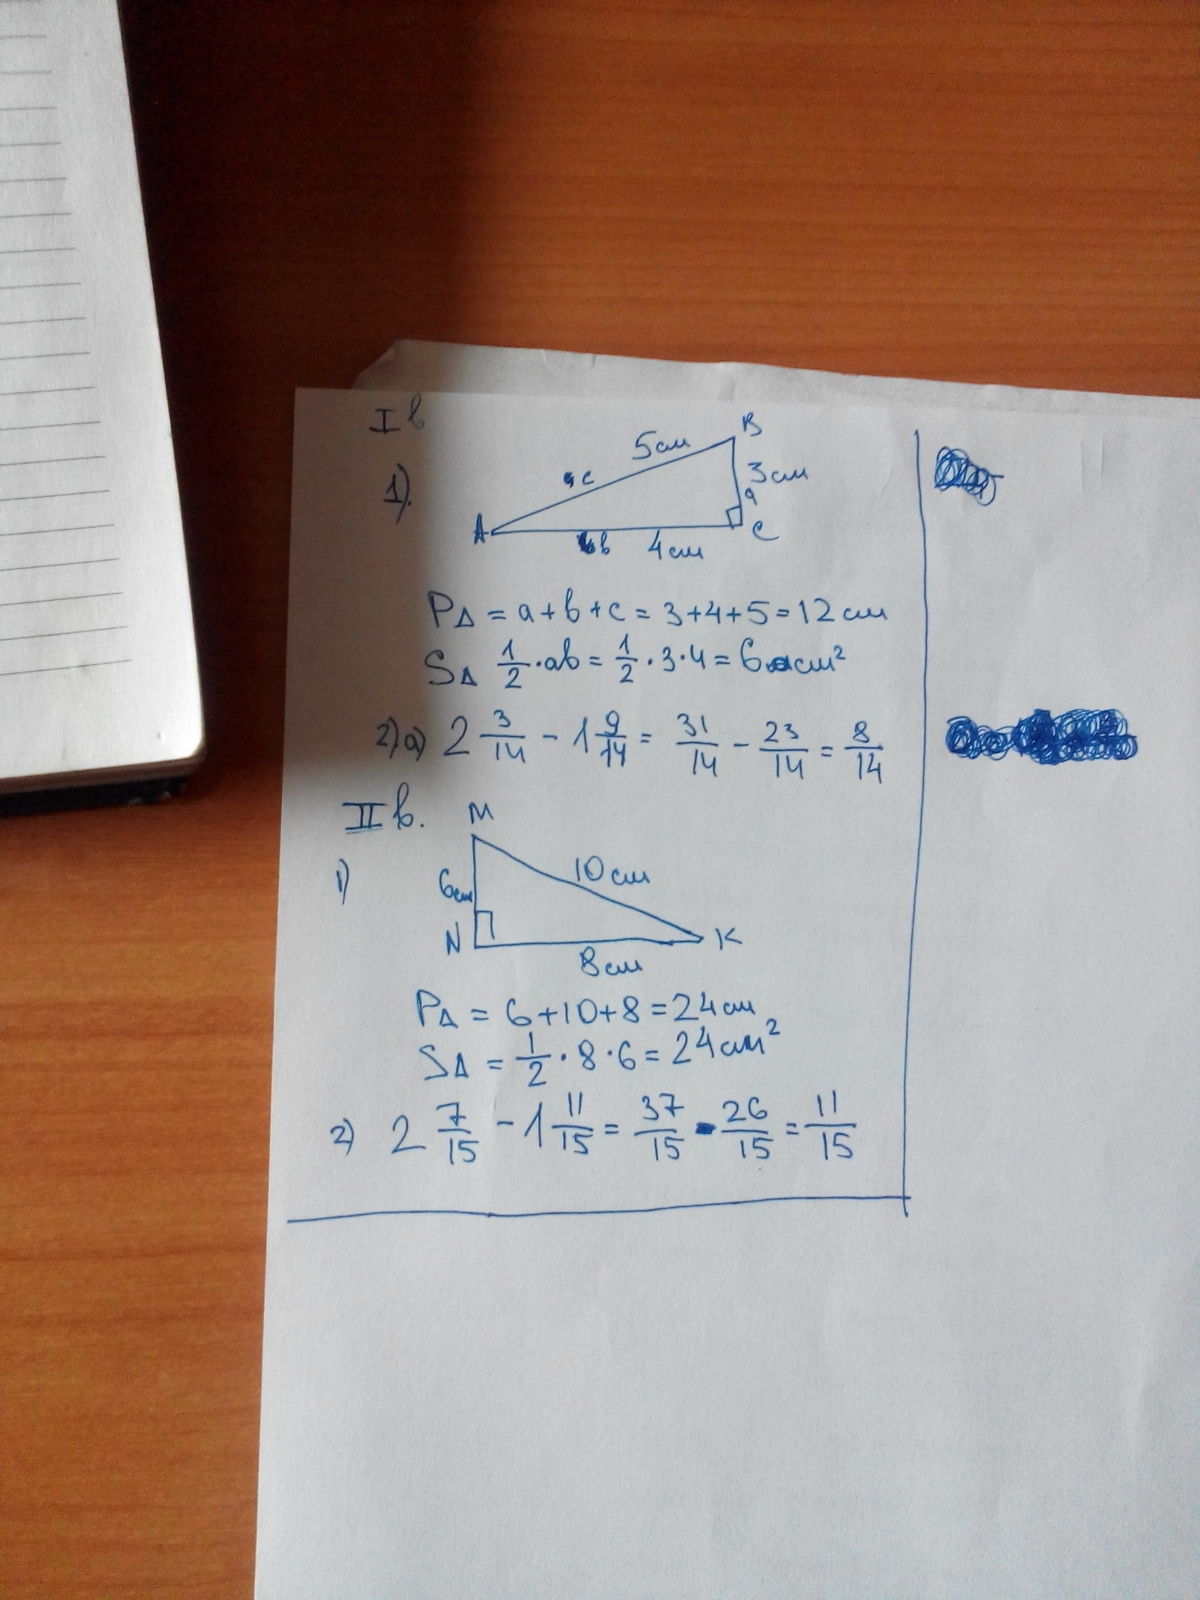 I в
1).
B
5см
с
3см
a
A
в 4см
C
P∆ = a + b + c = 3 + 4 + 5 = 12 см
S∆ 1/2 · ab = 1/2 · 3 · 4 = 6 см²
2) a) 2 3/14 - 1 9/14 = 31/14 - 23/14 = 8/14
II в.
1)
M
10 см
6см
N
K
8см
P∆ = 6 + 10 + 8 = 24 см
S∆ = 1/2 · 8 · 6 = 24 см²
2) 2 7/15 - 1 11/15 = 37/15 - 26/15 = 11/15